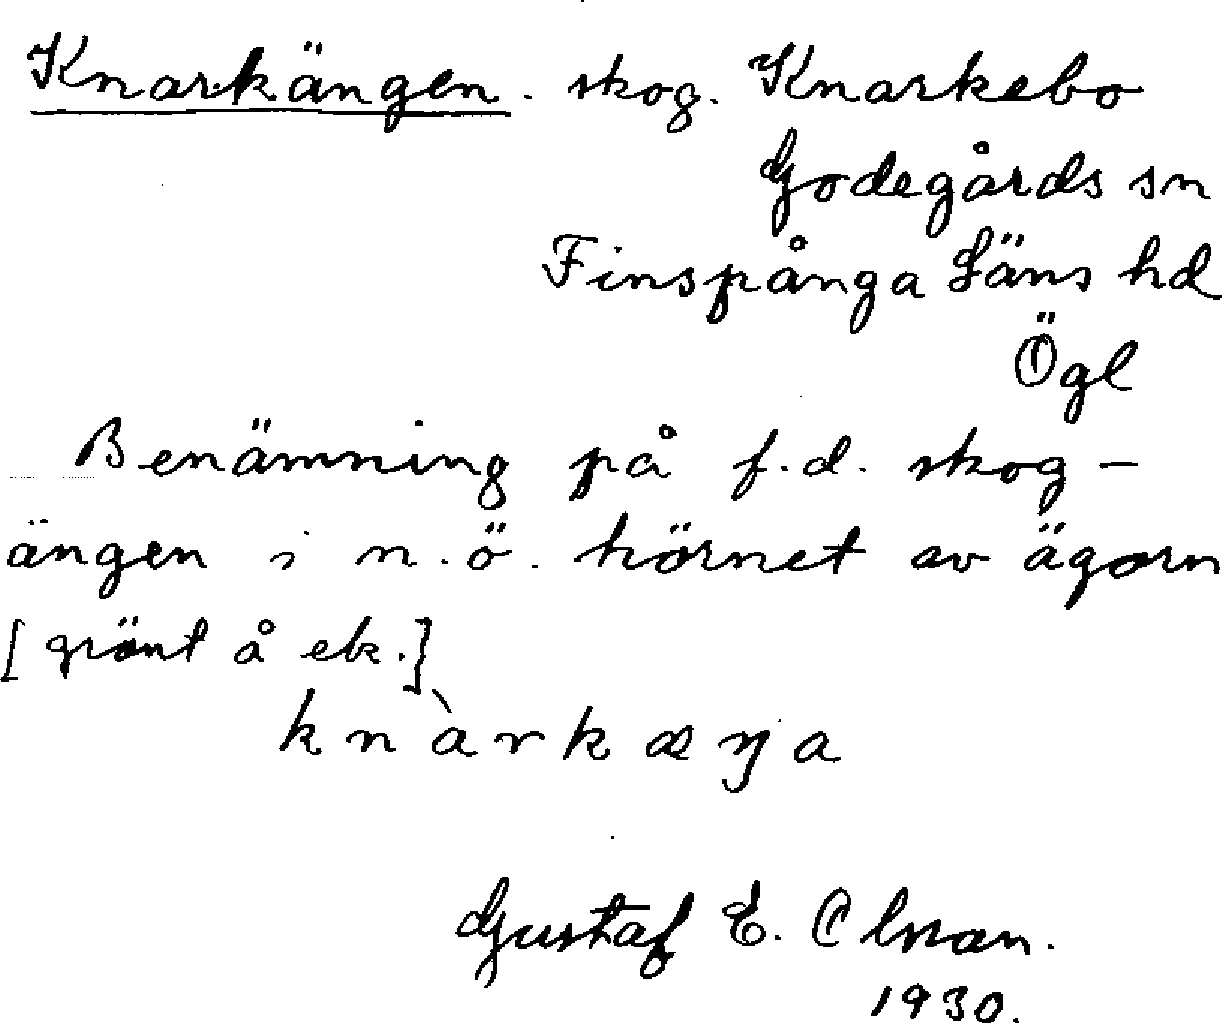 Knarkängen. skog. Knarkebo
Godegårds sn
Finspånga Läns hd
Ögl
Benämning på f.d. skog-
ängen i n.ö. hörnet av ägorn
[grönt å ek.]
knàrkæŋa
Gustaf E. Olson.
1930.